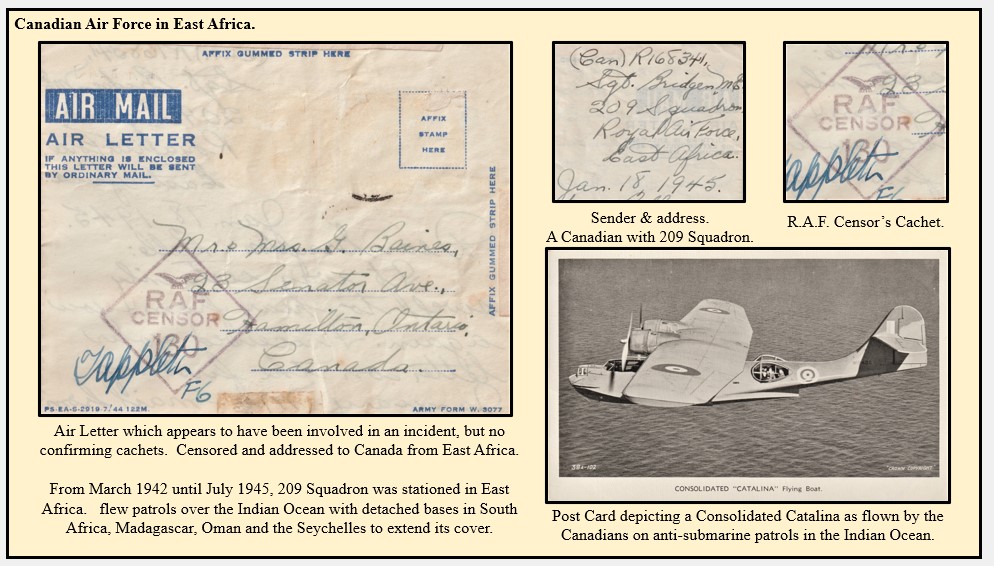 Canadian Air Force in East Africa.
AFFIX GUMMED STRIP HERE
AIR MAIL
AIR LETTER
IF ANYTHING IS ENCLOSED
THIS LETTER WILL BE SENT
BY ORDINARY MAIL.
AFFIX
STAMP
HERE
AFFIX GUMMED STRIP HERE
Mrs G. Baines,
23 Senator Ave.,
Hamilton, Ontario,
Canada.
RAF
CENSOR
130
F6
ARMY FORM W. 3077
Air Letter which appears to have been involved in an incident, but no
confirming cachets. Censored and addressed to Canada from East Africa.
From March 1942 until July 1945, 209 Squadron was stationed in East
Africa. flew patrols over the Indian Ocean with detached bases in South
Africa, Madagascar, Oman and the Seychelles to extend its cover.
(Can) R168341,
Sgt. Bridgen
209 Squadron
Royal Air Force,
East Africa.
Jan. 18, 1945.
Sender & address.
A Canadian with 209 Squadron.
RAF
CENSOR
130
F6
R.A.F. Censor's Cachet.
CONSOLIDATED "CATALINA" Flying Boat.
Post Card depicting a Consolidated Catalina as flown by the
Canadians on anti-submarine patrols in the Indian Ocean.